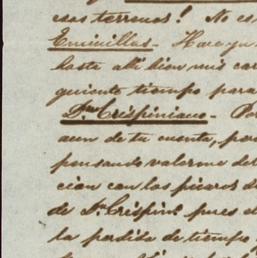 esos terrenos! No es
Eminillas. Hace ya
hasta alli dieu mis car
guiente tiempo para
Dn. Crispiniano. Po
aun de tu cuenta, par
pensando valerme del
cian con los picaros d
de Sn. Crispin! pues e
la perdida de tiempo,